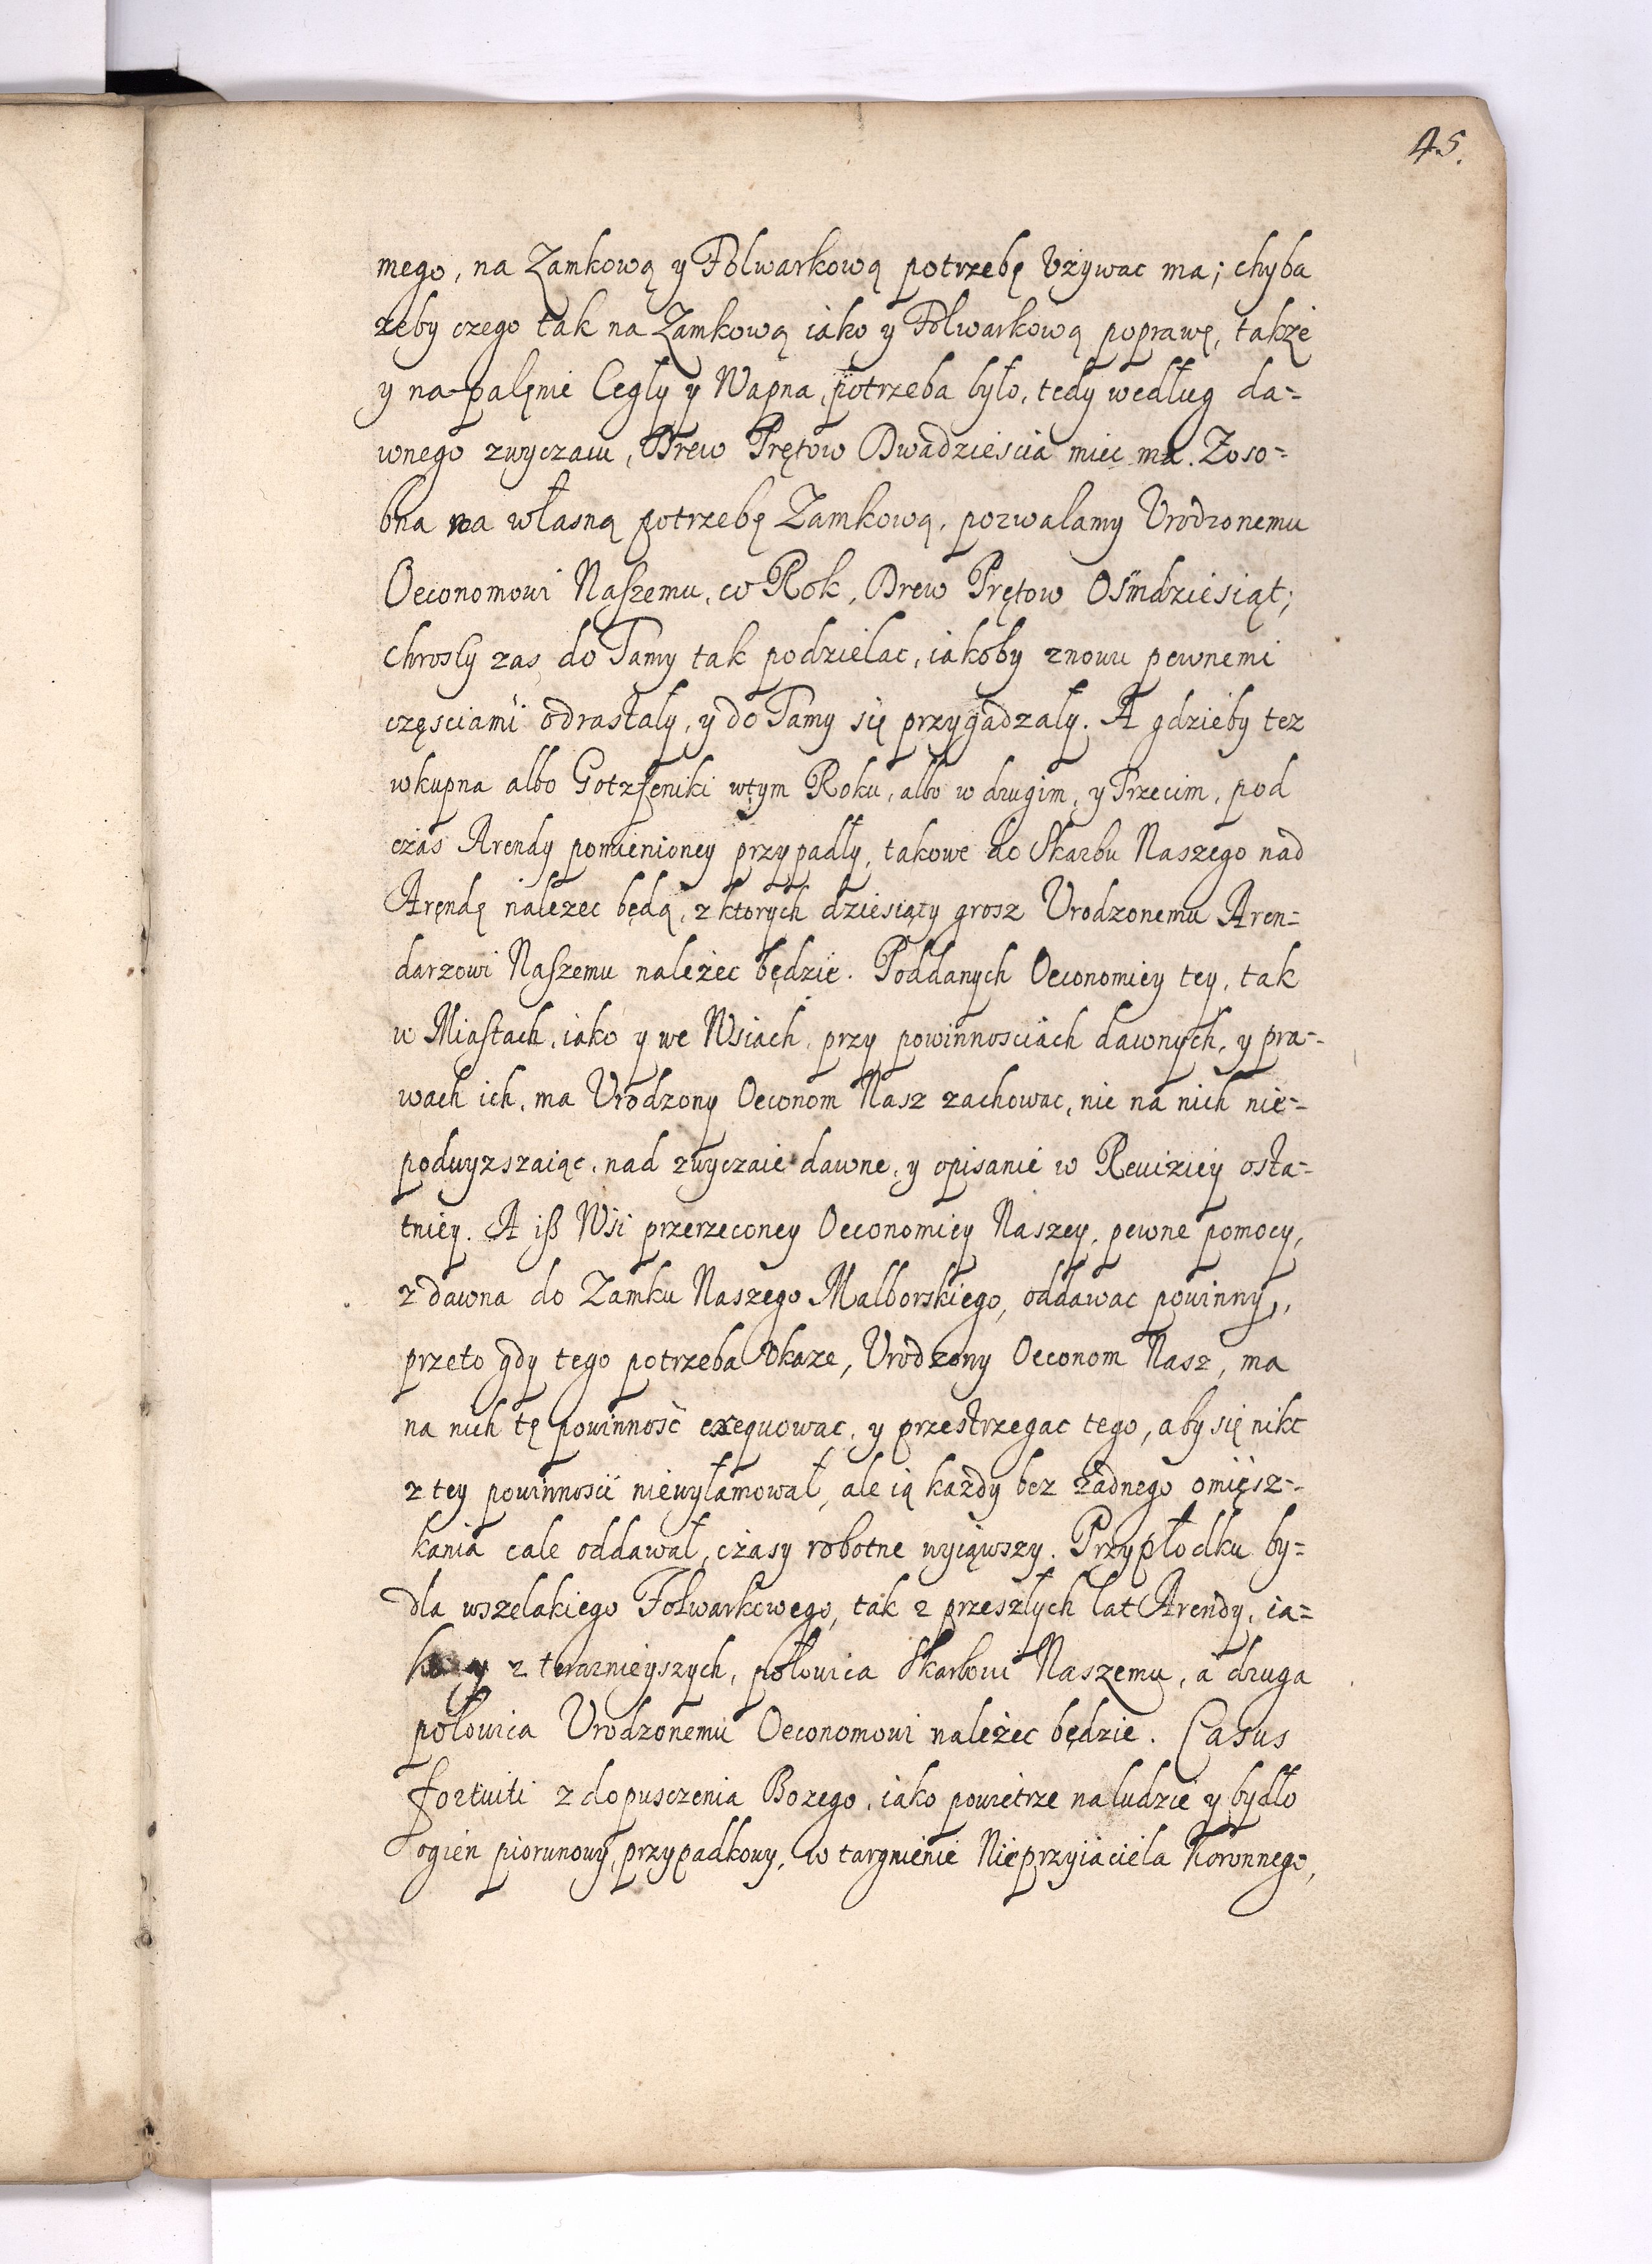 45.
mego, na Zamkową y Folwarkową potrzebę Vżywac ma; chyba
zeby czego tak na Zamkową iako y Folwarkową poprawę, także
y na palęnie Cegły y Wapna, potrzeba było, tedy według da=
wnego zwyczaiu, Drew Prętow Dwadziescia miec ma. Zoso=
bna na własną potrzebę Zamkową, pozwalamy Vrodzonemu
Oeconomowi Naszemu, co Rok, Drew Prętow Osmdziesiąt;
Chrosty zas do Tamy tak podzielac, iakoby znowu pewnemi
częsciami odrastały, y do Tamy się przygadzały. A gdzieby tez
wkupna albo Gotrzeniki wtym Roku, albo w drugim, y Trzecim, pod
czas Arendy pomienioney przypadły, takowe do Skarbu Naszego nad
Arendę nalezec będą, z ktorych dziesiąty grosz Vrodzonemu Aren=
darzowi Naszemu należec będzie. Poddanych Oeconomiey tey, tak
w Miastach, iako y we Wsiach, przy powinnosciach dawnych, y pra=
wach ich, ma Vrodzony Oeconom Nasz zachowac, nic na nich nie=
podwyzszaiąc, nad zwyczaie dawne, y opisanie w Reuiziey osta=
tniey. A iß Wsi przerzeconey Oeconomiey Naszey, pewne pomocy,
z dawna do Zamku Naszego Malborskiego, oddawac powinny,
przeto gdy tego potrzeba Vkaze, Vrodzony Oeconom Nasz, ma
na nich tę powinność exequowac, y przestrzegac tego, aby się nikt
z tey powinnosci niewyłamował, ale ią każdy bez żadnego omięsz=
kania cale oddawał, czasy robotne wyiąwszy. Przypłodku by=
dla wszelakiego Folwarkowego, tak z przeszłych lat Arendy, ia=
ko y z teraznieyszych, połowica Skarbowi Naszemu, a druga
połowica Vrodzonemu Oeconomowi należec będzie. Casus
fortuiti z dopusczenia Bozego, iako powietrze na ludzie y bydło
ogień piorunowy, przypadkowy, w targnienie Nieprzyiaciela Koronnego,